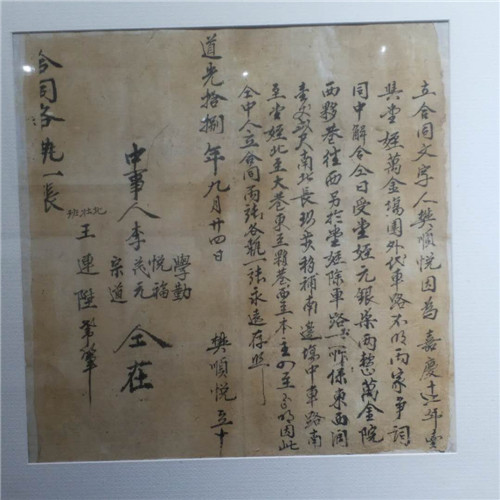 立合同文字人樊順悅因為嘉慶十
與堂姪萬金塲園外代車路不明両家爭詞
同中解合仝日受堂姪元銀柒両整萬金院
西夥巷往西另於堂姪除車路一條東西闊
南北長移補南邊塲中車路南
至堂姪北至大巷東至夥巷西至本主四至明因此
仝中人立合同両張各執一張永遠存照
樊順悅立十
道光拾捌年九月廿四日
中事人李
學勤
悅福
茂元
宗道
仝在
王連陞筆
合同各執一張